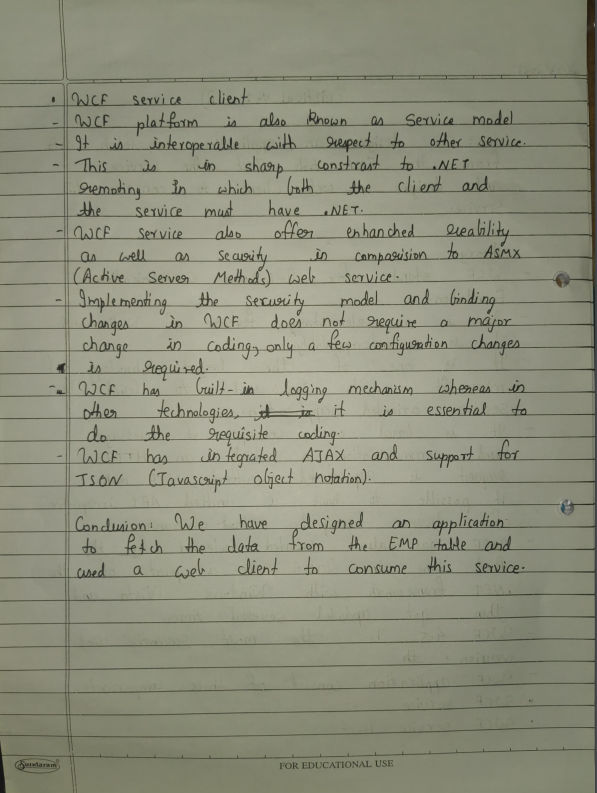 • WCF service client
- WCF platform is also known as Service model
- It is interoperable with respect to other service.
- This is in sharp constrast to .NET
remoting in which both the client and
the service must have .NET.
- WCF service also offer enhanched reability
as well as security in comparision to ASMX
(Active Server Methods) web service.
- Implementing the security model and binding
changes in WCF does not require a major
change in coding, only a few configuration changes
is required.
- WCF has built-in logging mechanism whereas in
other technologies, it is it is essential to
do the requisite coding.
- WCF has integrated AJAX and support for
JSON (Javascript object notation).
Conclusion: We have designed an application
to fetch the data from the EMP table and
used a web client to consume this service.
Sundaram
FOR EDUCATIONAL USE